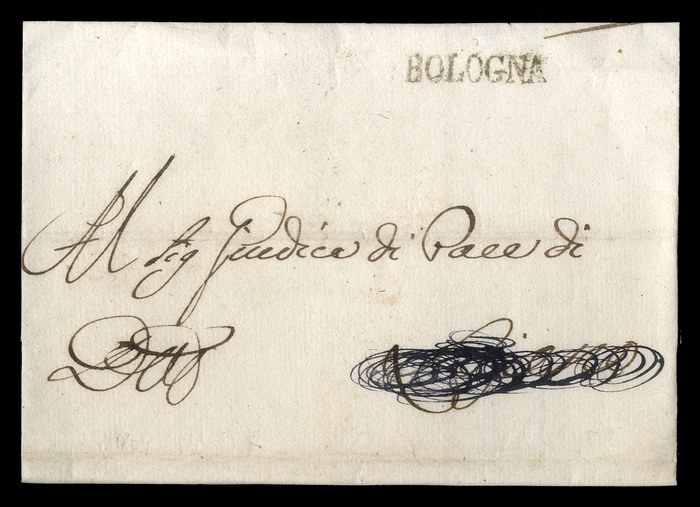 BOLOGNA
Al Sig Giudice di Pace di